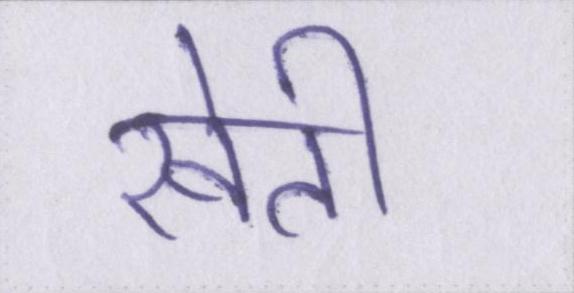 खेती